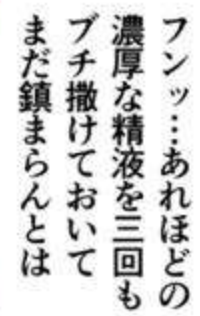 フンッ…あれほどの
濃厚な精液を三回も
ブチ撒けておいて
まだ鎮まらんとは